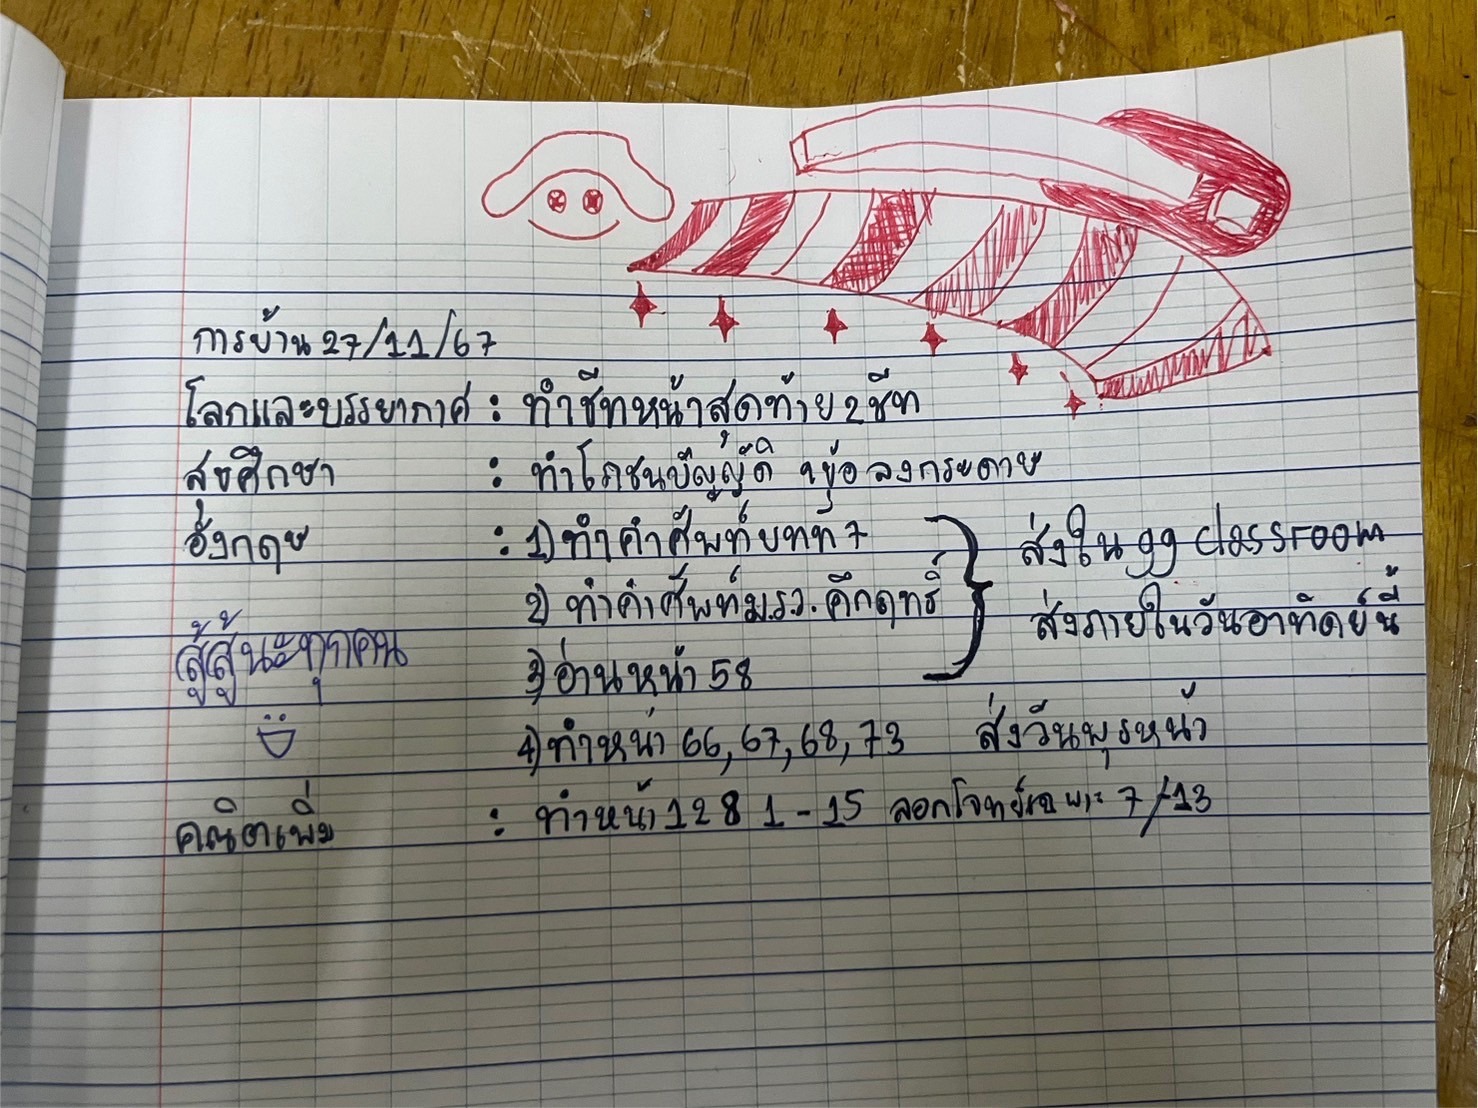 การบ้าน 27/11/67
โลกและบรรยากาศ : ทำชีทหน้าสุดท้าย 2 ชีท
สุขศึกษา : ทำโภชนบัญญัติ ข้อ ลงกระดาษ
อังกฤษ : 1) ทำคำศัพท์บทที่ 7
2) ทำคำศัพท์ ม.ร.ว. คึกฤทธิ์
3) อ่านหน้า 58
ส่งใน gg classroom
ส่งภายในวันอาทิตย์นี้
4) ทำหน้า 66, 67, 68, 73 ส่งวันพุธหน้า
สู้สู้นะทุกคน
คณิตเพิ่ม : ทำหน้า 128 1 - 15 ลอกโจทย์เฉพาะ 7 / 13